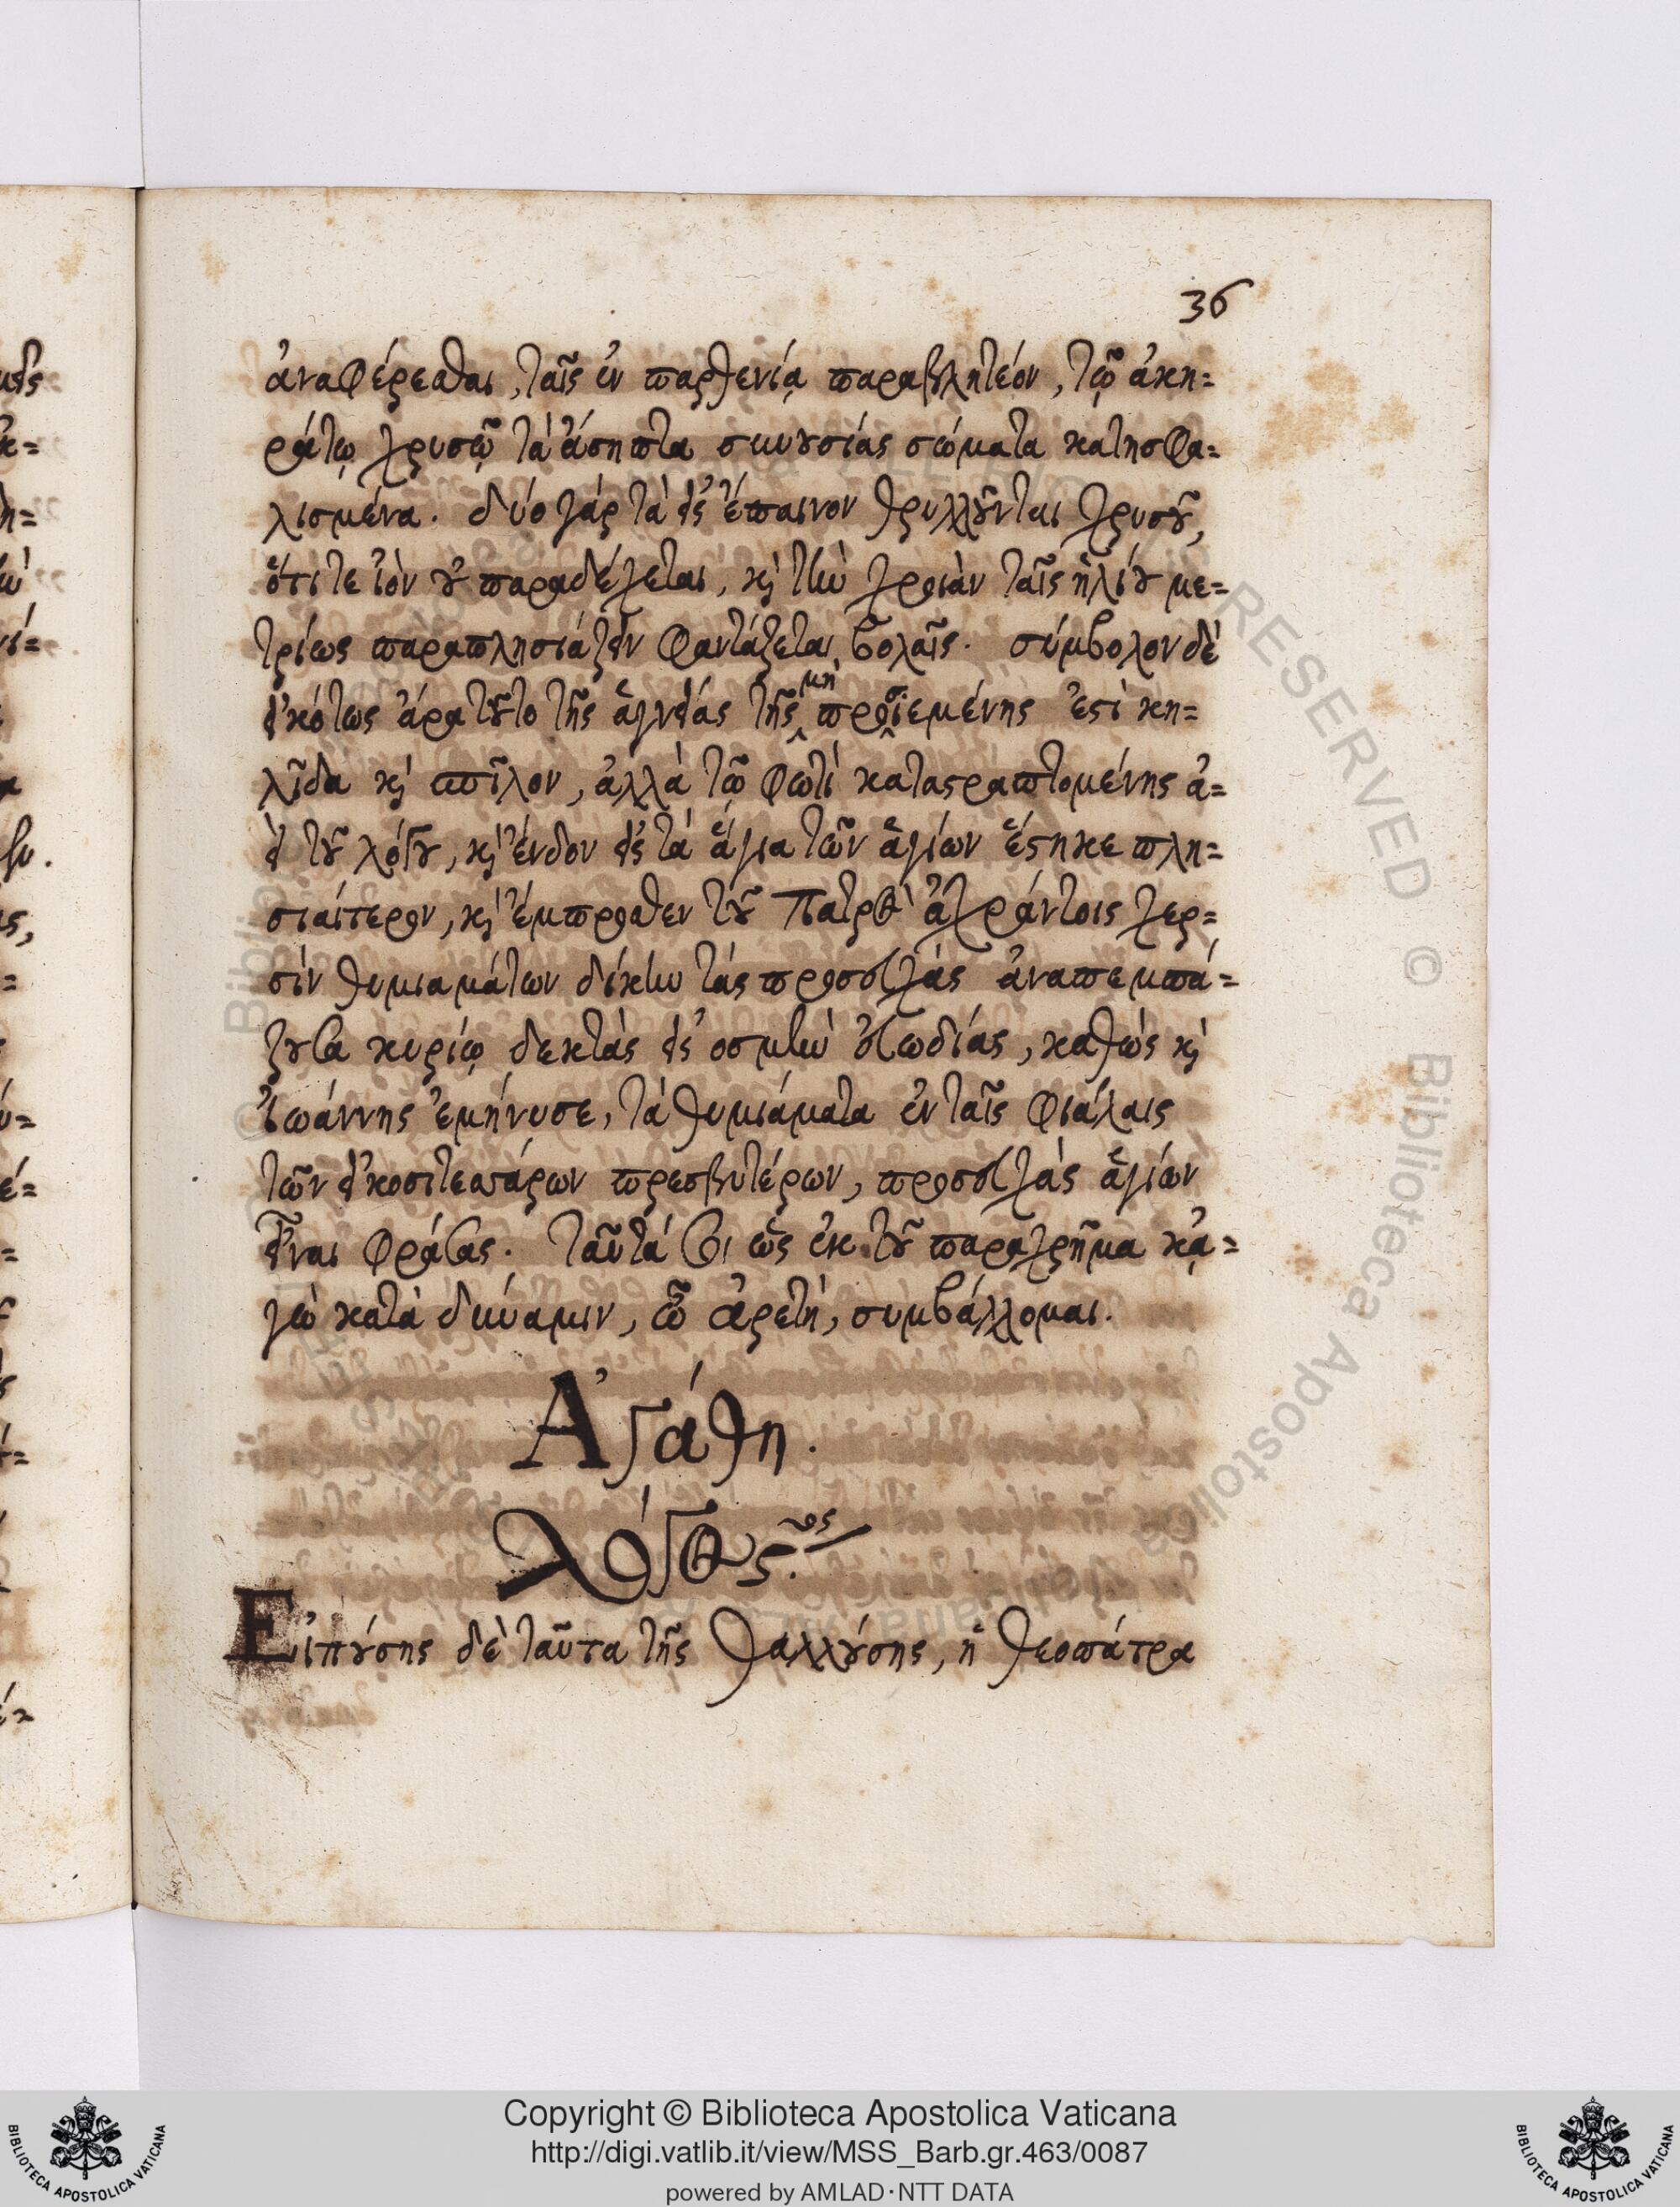 36
ἀναφέρεσθαι, ταῖς ἐν παρθενίᾳ παραβλητέον, τῷ ἀκη=
ράτῳ χρυσῷ τὰ ἄσηπτα συνουσίας σώματα κατησφα=
λισμένα. δύο γάρ τὰ εἰς ἔπαινον θρυλλοῦνται χρυσοῦ,
ὅτι τε ἰὸν οὐ παραδέχεται, καὶ τὴν χροιὰν ταῖς ἡλίου με=
τρίως παραπλησιάζειν φαντάζεται, βολαῖς. σύμβολον δὲ
εἰκότως ἄρα τοῦτο τῆς ἁγνείας τῆς μὴ προσιεμένης ἐστὶ κη=
λῖδα καὶ σπῖλον, ἀλλὰ τῷ φωτὶ καταστραπτομένης ἀ=
εὶ τοῦ λόγου, καὶ ἔνδον εἰς τὰ ἅγια τῶν ἁγίων ἕστηκε πλη=
σιαίτερον, καὶ ἔμπροσθεν τοῦ Πατρὸς ἀχράντοις χερ=
σὶν θυμιαμάτων δίκην τὰς προσευχὰς ἀναπεμπά=
ζουσα κυρίῳ δεκτὰς εἰς οσμὴν εὐωδίας, καθὼς καὶ
ἰωάννης ἐμήνυσε, τὰ θυμιάματα ἐν ταῖς φιάλαις
τῶν εἰκοσιτεσσάρων πρεσβυτέρων, προσευχὰς ἁγίων
εἶναι φράσας. ταῦτά σοι ὡς ἐκ τοῦ παραχρῆμα κᾀ=
γὼ κατὰ δύναμιν, ὦ ἀρετὴ, συμβάλλομαι.
Ἀγάθη.
λόγος ϛ.ος
Εἰπούσης δὲ ταῦτα τῆς Θαλλούσης, ἡ θεοπάτρα
Copyright © Biblioteca Apostolica Vaticana
http://digi.vatlib.it/view/MSS_Barb.gr.463/0087
powered by AMLAD·NTT DATA
BIBLIOTECA APOSTOLICA VATICANA
BIBLIOTECA APOSTOLICA VATICANA